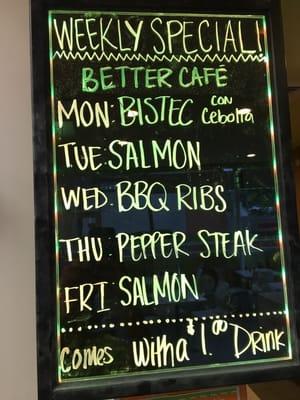 WEEKLY SPECIAL!
BETTER CAFE
MON: BISTEC con Cebolla
TUE: SALMON
WED: BBQ RIBS
THU: PEPPER STEAK
FRI: SALMON
comes with a $1.00 Drink